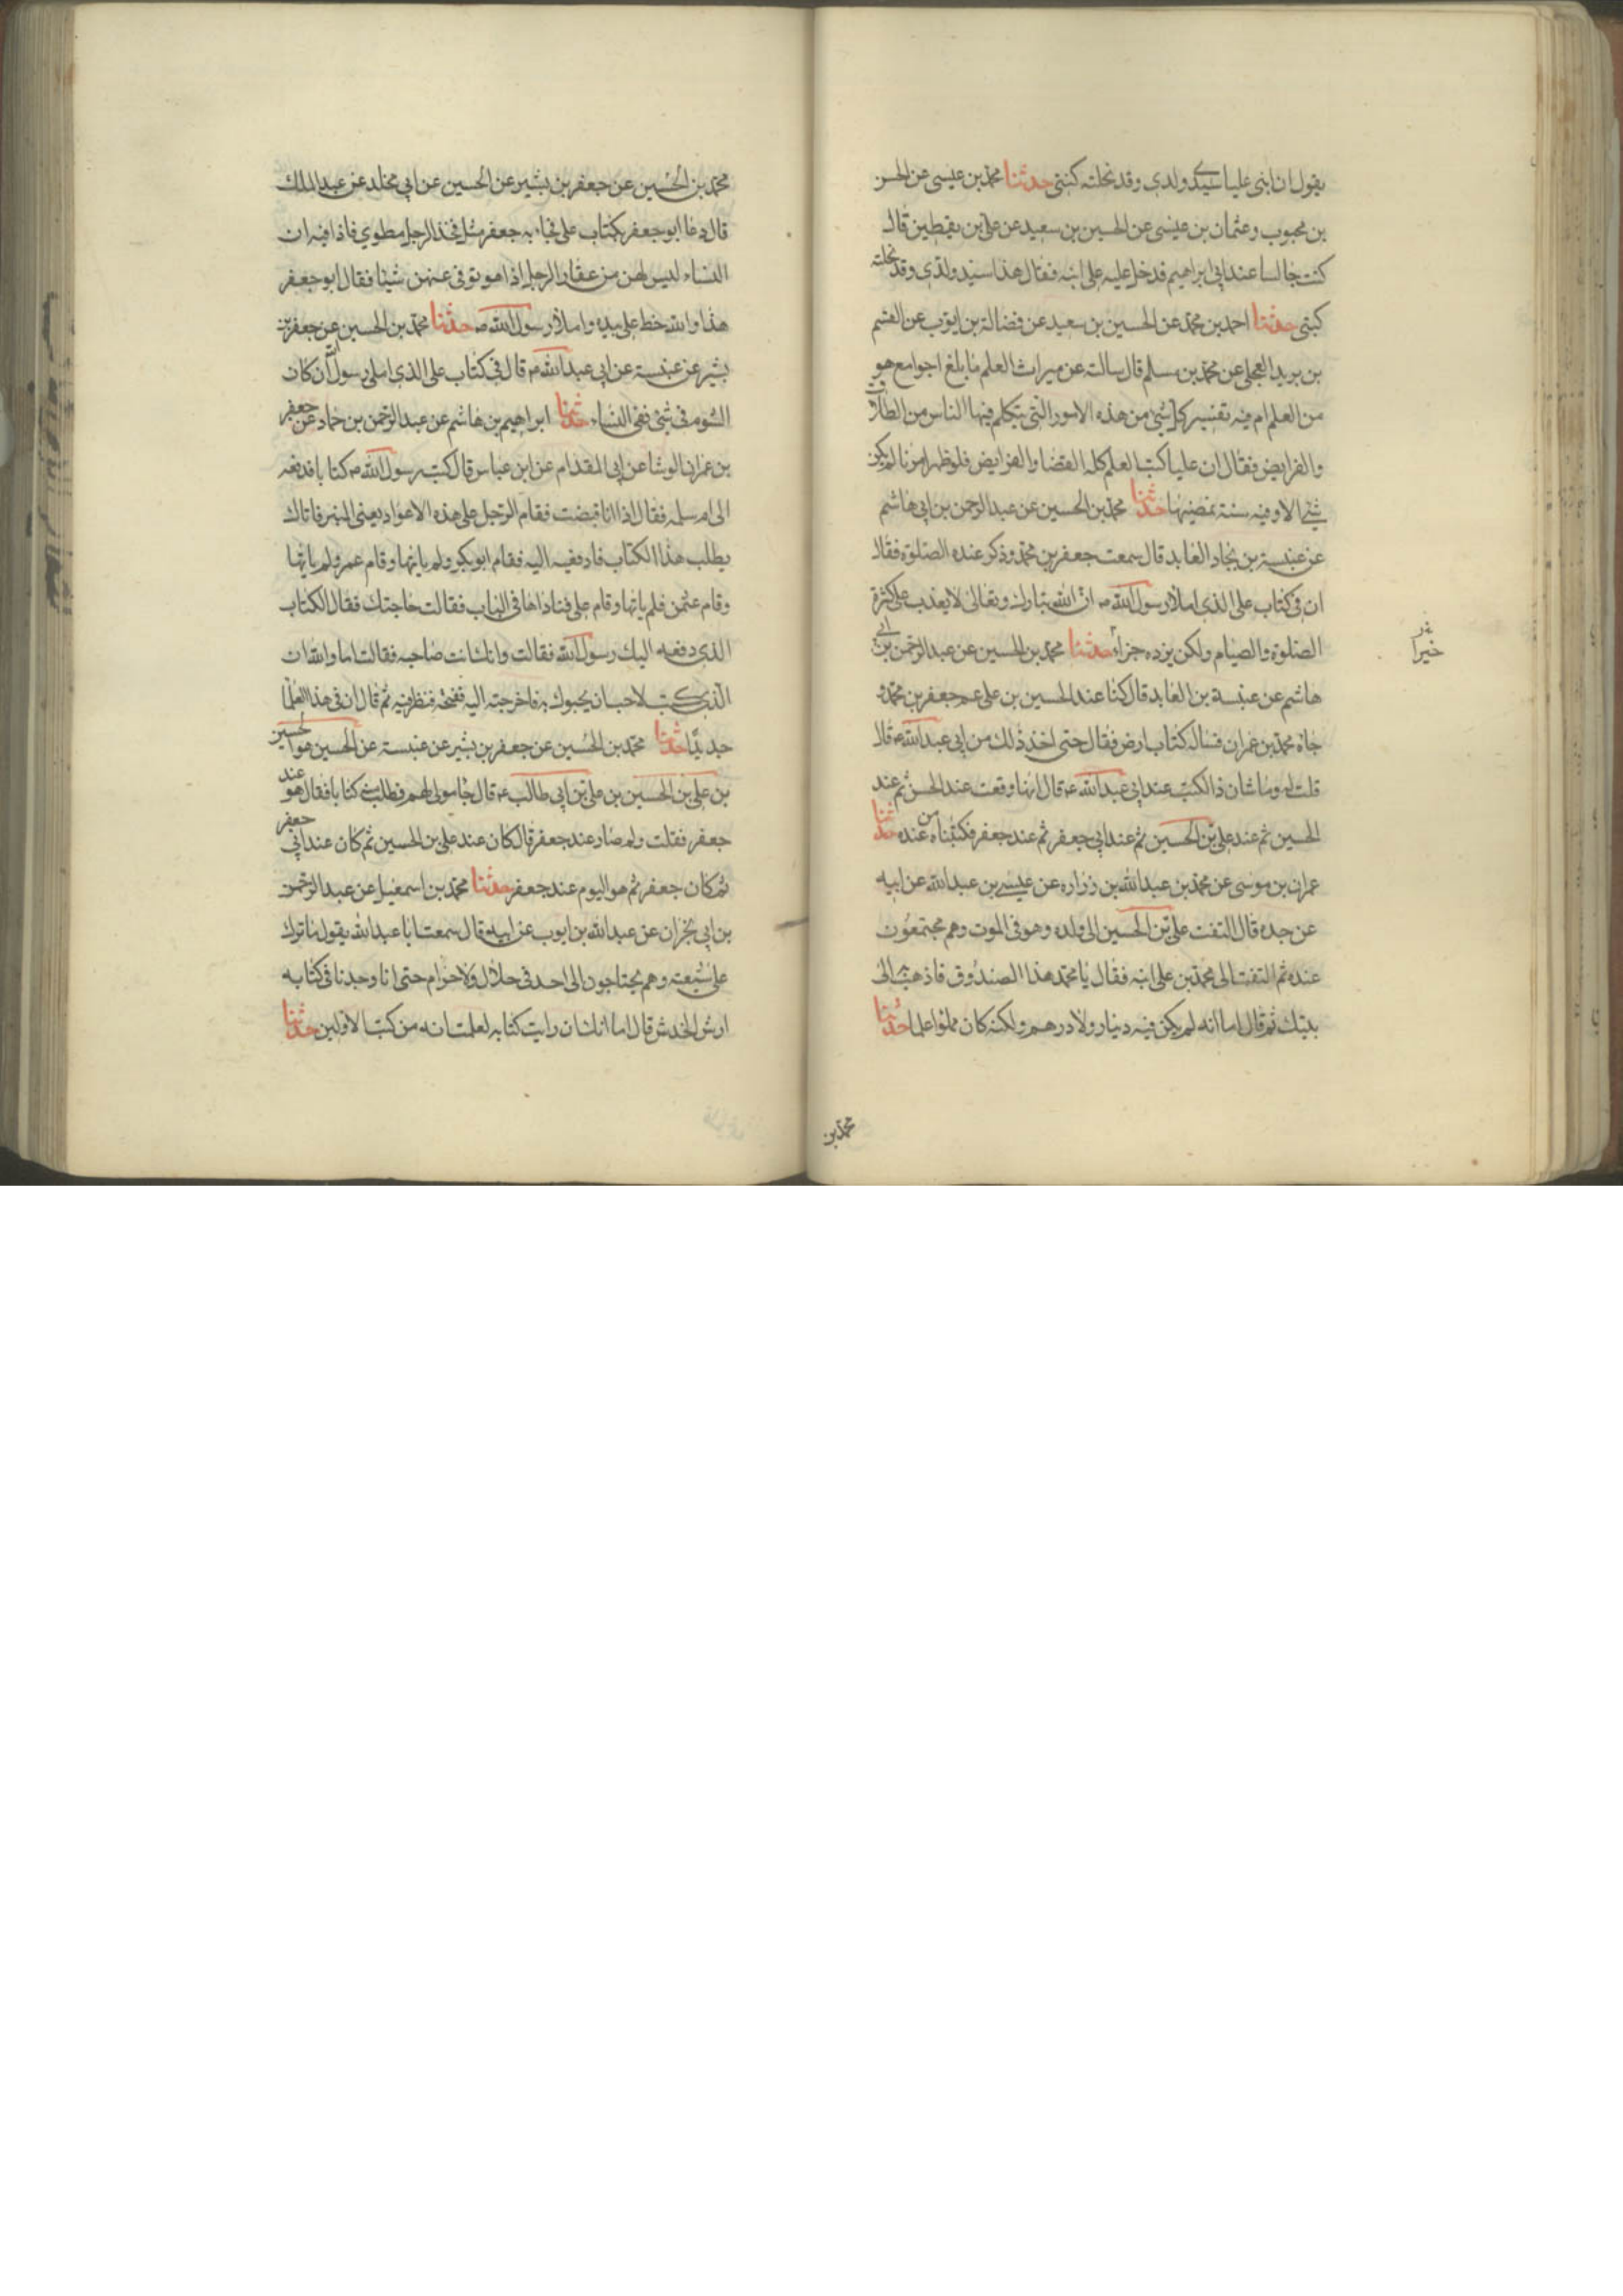 يقول ان ابنى عليا سيد ولدى وقد نحلته كنيتى حدثنا محمد بن عيسى عن الحسن
بن محبوب وعثمان بن عيسى عن الحسين بن سعيد عن على بن يقطين قال
كنت جالسا عند ابى ابراهيم فدخل عليه على ابنه فقال هذا سيد ولدى وقد نحلته
كنيتى حدثنا احمد بن محمد عن الحسين بن سعيد عن فضالة بن ايوب عن القسم
بن بريد العجلى عن محمد بن مسلم قال سالته عن ميراث العلم ما بلغ اجوامع هو
من العلم ام فيه تفسير كل شئ من هذه الامور التى يتكلم فيها الناس من الطلاق
والفرايض فقال ان عليا كتب العلم كله القضا والفرايض فلو ظهر امرنا لم يكن
شئ الا وفيه سنة نمضيها حدثنا محمد بن الحسين عن عبد الرحمن بن ابى هاشم
عن عنبسة بن بجاد العابد قال سمعت جعفر بن محمد وذكر عنده الصلوة فقال
ان فى كتاب على الذى املاه رسول الله ص ان الله تبارك وتعالى لا يعذب على كثرة
الصلوة والصيام ولكن يزده جزاء حدثنا محمد بن الحسين عن عبد الرحمن بن ابى
خيرا
هاشم عن عنبسة بن العابد قال كنا عند الحسين بن على عم جعفر بن محمد و
جاه محمد بن عمران فساله كتاب ارض فقال حتى اخذ ذلك من ابى عبد الله ع قال
قلت له وما شان ذا الكتب عند ابى عبد الله ع قال انها وقعت عند الحسن ثم عند
الحسين ثم عند على بن الحسين ثم عند ابى جعفر ثم عند جعفر فكتبناه من عنده حدثنا
عمران بن موسى عن محمد بن عبد الله بن زراره عن عيسى بن عبد الله عن ابيه
عن جده قال التفت على بن الحسين الى ولده وهو فى الموت وهم مجتمعون
عنده ثم التفت الى محمد بن على ابنه فقال يا محمد هذا الصندوق فاذهب الى
بيتك ثم قال اما انه لم يكن فيه دينار ولا درهم ولكنه كان مملوا علما حدثنا
محمد بن
محمد بن الحسين عن جعفر بن بشير عن الحسين عن ابى مخلد عن عبد الملك
قال دعا ابو جعفر بكتاب على فجاء به جعفر مثل فخذ الرجل مطوى فاذا فيه ان
النساء ليس لهن من عقار الرجل اذا هو توفى عنهن شيئا فقال ابو جعفر
هذا والله خط على بيده واملاء رسول الله ص حدثنا محمد بن الحسين عن جعفر بن
بشير عن عنبسة عن ابى عبد الله ع قال فى كتاب على الذى املى رسول الله ان كان
الشوم فى شئ ففى النساء حدثنا ابراهيم بن هاشم عن عبد الرحمن بن حماد عن جعفر
بن عمران الوشا عن ابى المقدام عن ابن عباس قال كتب رسول الله ص كتابا فدفعه
الى ام سلمه فقال اذا انا قبضت فقام الرجل على هذه الاعواد يعنى المنبر فاتاك
يطلب هذا الكتاب فادفعيه اليه فقام ابو بكر ولم ياتها وقام عمر ولم ياتها
وقام عثمن فلم ياتها وقام على فناداها فى الباب فقالت ما حاجتك فقال الكتاب
الذى دفعه اليك رسول الله فقالت وانك انت صاحبه فقالت اما والله ان
الذى كتب لاحب ان يحبوك به فاخرجته اليه ففتحه فنظر فيه ثم قال ان فى هذا لعلما
جديدا حدثنا محمد بن الحسين عن جعفر بن بشير عن عنبسة عن الحسين هو ابن حسين
بن على بن الحسين بن على بن ابى طالب ع قال جا مولى لهم فطلب منى كتابا فقال هو عند
جعفر فقلت ولم صار عند جعفر قال كان عند على بن الحسين ثم كان عند ابى جعفر
ثم كان جعفر ثم هو اليوم عند جعفر حدثنا محمد بن اسمعيل عن عبد الرحمن
بن ابى نجران عن عبد الله بن ايوب عن ابيه قال سمعت ابا عبد الله يقول ما ترك
على شيعته وهم يحتاجون الى احد فى حلال ولا حرام حتى انا وجدنا فى كتابه
ارش الخدش قال اما انك ان رايت كتابه لعلمت انه من كتب الاولين حدثنا